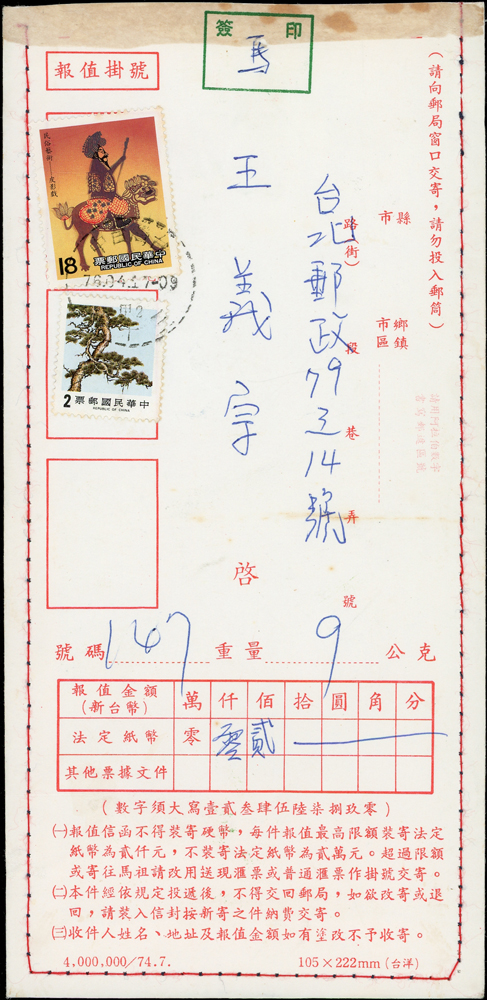 簽 印
馬
報值掛號
(請向郵局窗口交寄，請勿投入郵筒)
縣
市
鄉鎮
市區
路
(街)
段
巷
弄
號
台北郵政79之14號
王義宗
啓
民俗藝術——皮影戲
18
中華民國郵票
REPUBLIC OF CHINA
76.04.17-09
2
中華民國郵票
REPUBLIC OF CHINA
請用阿拉伯數字
書寫郵遞區號
號碼 147 重量 9 公克
報值金額 (新台幣) 萬 仟 佰 拾 圓 角 分
法定紙幣 零 零 貳
其他票據文件
(數字須大寫壹貳叁肆伍陸柒捌玖零)
㈠報值信函不得裝寄硬幣，每件報值最高限額裝寄法定
紙幣為貳仟元，不裝寄法定紙幣為貳萬元。超過限額
或寄往馬祖請改用送現匯票或普通匯票作掛號交寄。
㈡本件經依規定投遞後，不得交回郵局，如欲改寄或退
回，請裝入信封按新寄之件納費交寄。
㈢收件人姓名、地址及報值金額如有塗改不予收寄。
4,000,000/74.7. 105×222mm(台洋)